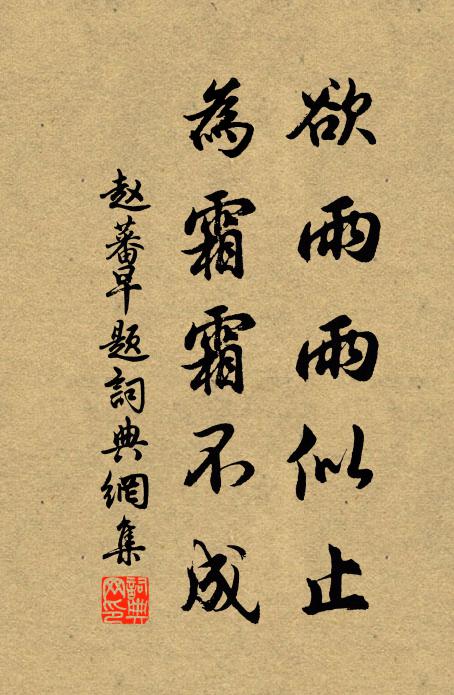 欲雨雨似止
為霜霜不成
赵蕃早题詞典網集
詞典网印